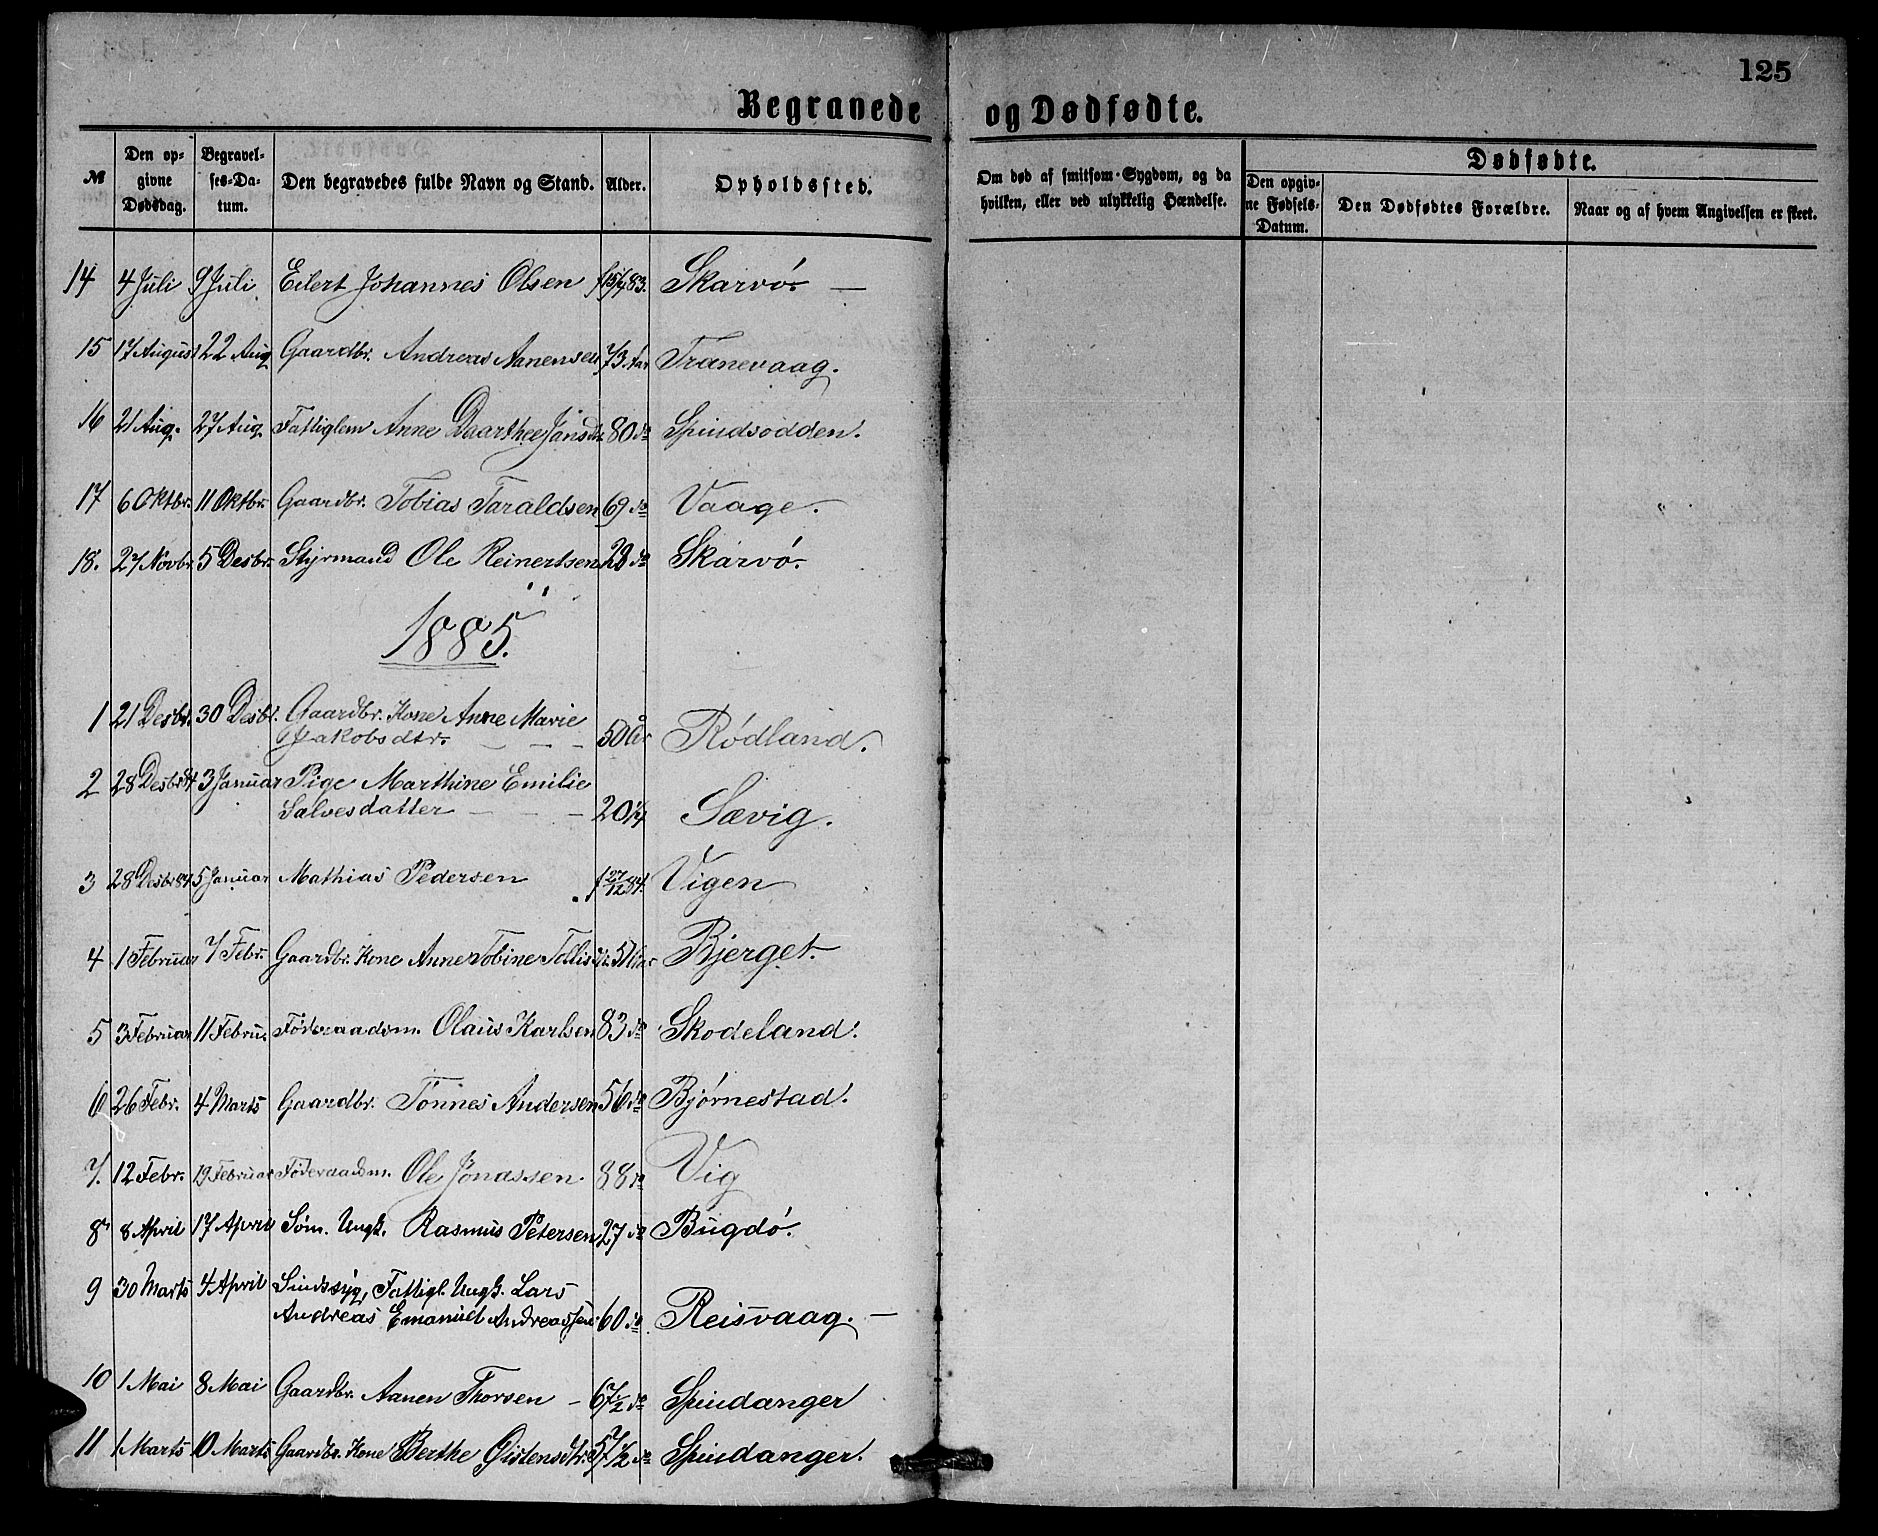 125
Begravede og Dødfødte.
№ Den op- Begravel- Den begravedes fulde Navn og Stand. Alder. Opholdssted. Om død af smitsom Sygdom, og da Dødfødte.
givne ses-Da- hvilken, eller ved ulykkelig Hændelse. Den opgiv- Den Dødfødtes Forældre. Naar og af hvem Angivelsen er skeet.
Dødsdag. tum. ne Fødsels-
Datum.
14 4 Juli 9 Juli Eilert Johannes Olsen f 15/4 83. Skarvø. —
15 17 August 22 Aug Gaardbr. Andreas Aanensen 73 Aar Tranevaag.
16 21 Aug. 27 Aug. Fattiglem Anne Daarthee Jansdtr 80 do Spindsodden.
17 6 Oktbr. 11 Oktbr. Gaardbr. Tobias Taraldsen 69 do Vaage.
18. 27 Novbr. 5 Desbr. Styrmand Ole Reinertsen 28 do Skarvø.
1885.
1 21 Desbr. 30 Desbr. Gaardbr. Kone Anne Marie
Jakobsdtr. — — — 50 Aar Rødland.
2 28 Desbr 84 3 Januar Pige Marthine Emilie
Salvesdatter — — — 20 1/4 Sævig.
3 28 Desbr 84 5 Januar Mathias Pedersen f 27/12 84. Vigen
4 1 Februar 7 Febr. Gaardbr. Kone Anne Tobine Tollisdtr. 51 Aar Bjerget.
5 3 Februar 11 Februar Føderaadsm. Olaus Karlsen 83 do Skodeland.
6 26 Febr. 4 Marts Gaardbr. Tønnes Andersen 56 do Bjørnestad.
7. 12 Febr. 19 Februar Føderaadsm. Ole Jonassen. 88 do Vig
8 8 April 17 April Søm. Ungk. Rasmus Petersen 27 do Bugdø.
9 30 Marts 4 April Sindssyg, Fattigl. Ungk. Lars
Andreas Emanuel Andreassen 60 do Reisvaag. —
10 1 Mai 8 Mai Gaardbr. Aanen Thorsen — 67 1/2 do Spindanger
11 1 Marts 10 Marts Gaardbr. Kone Berthe Gistensdtr. 57 1/2 do Spindanger.